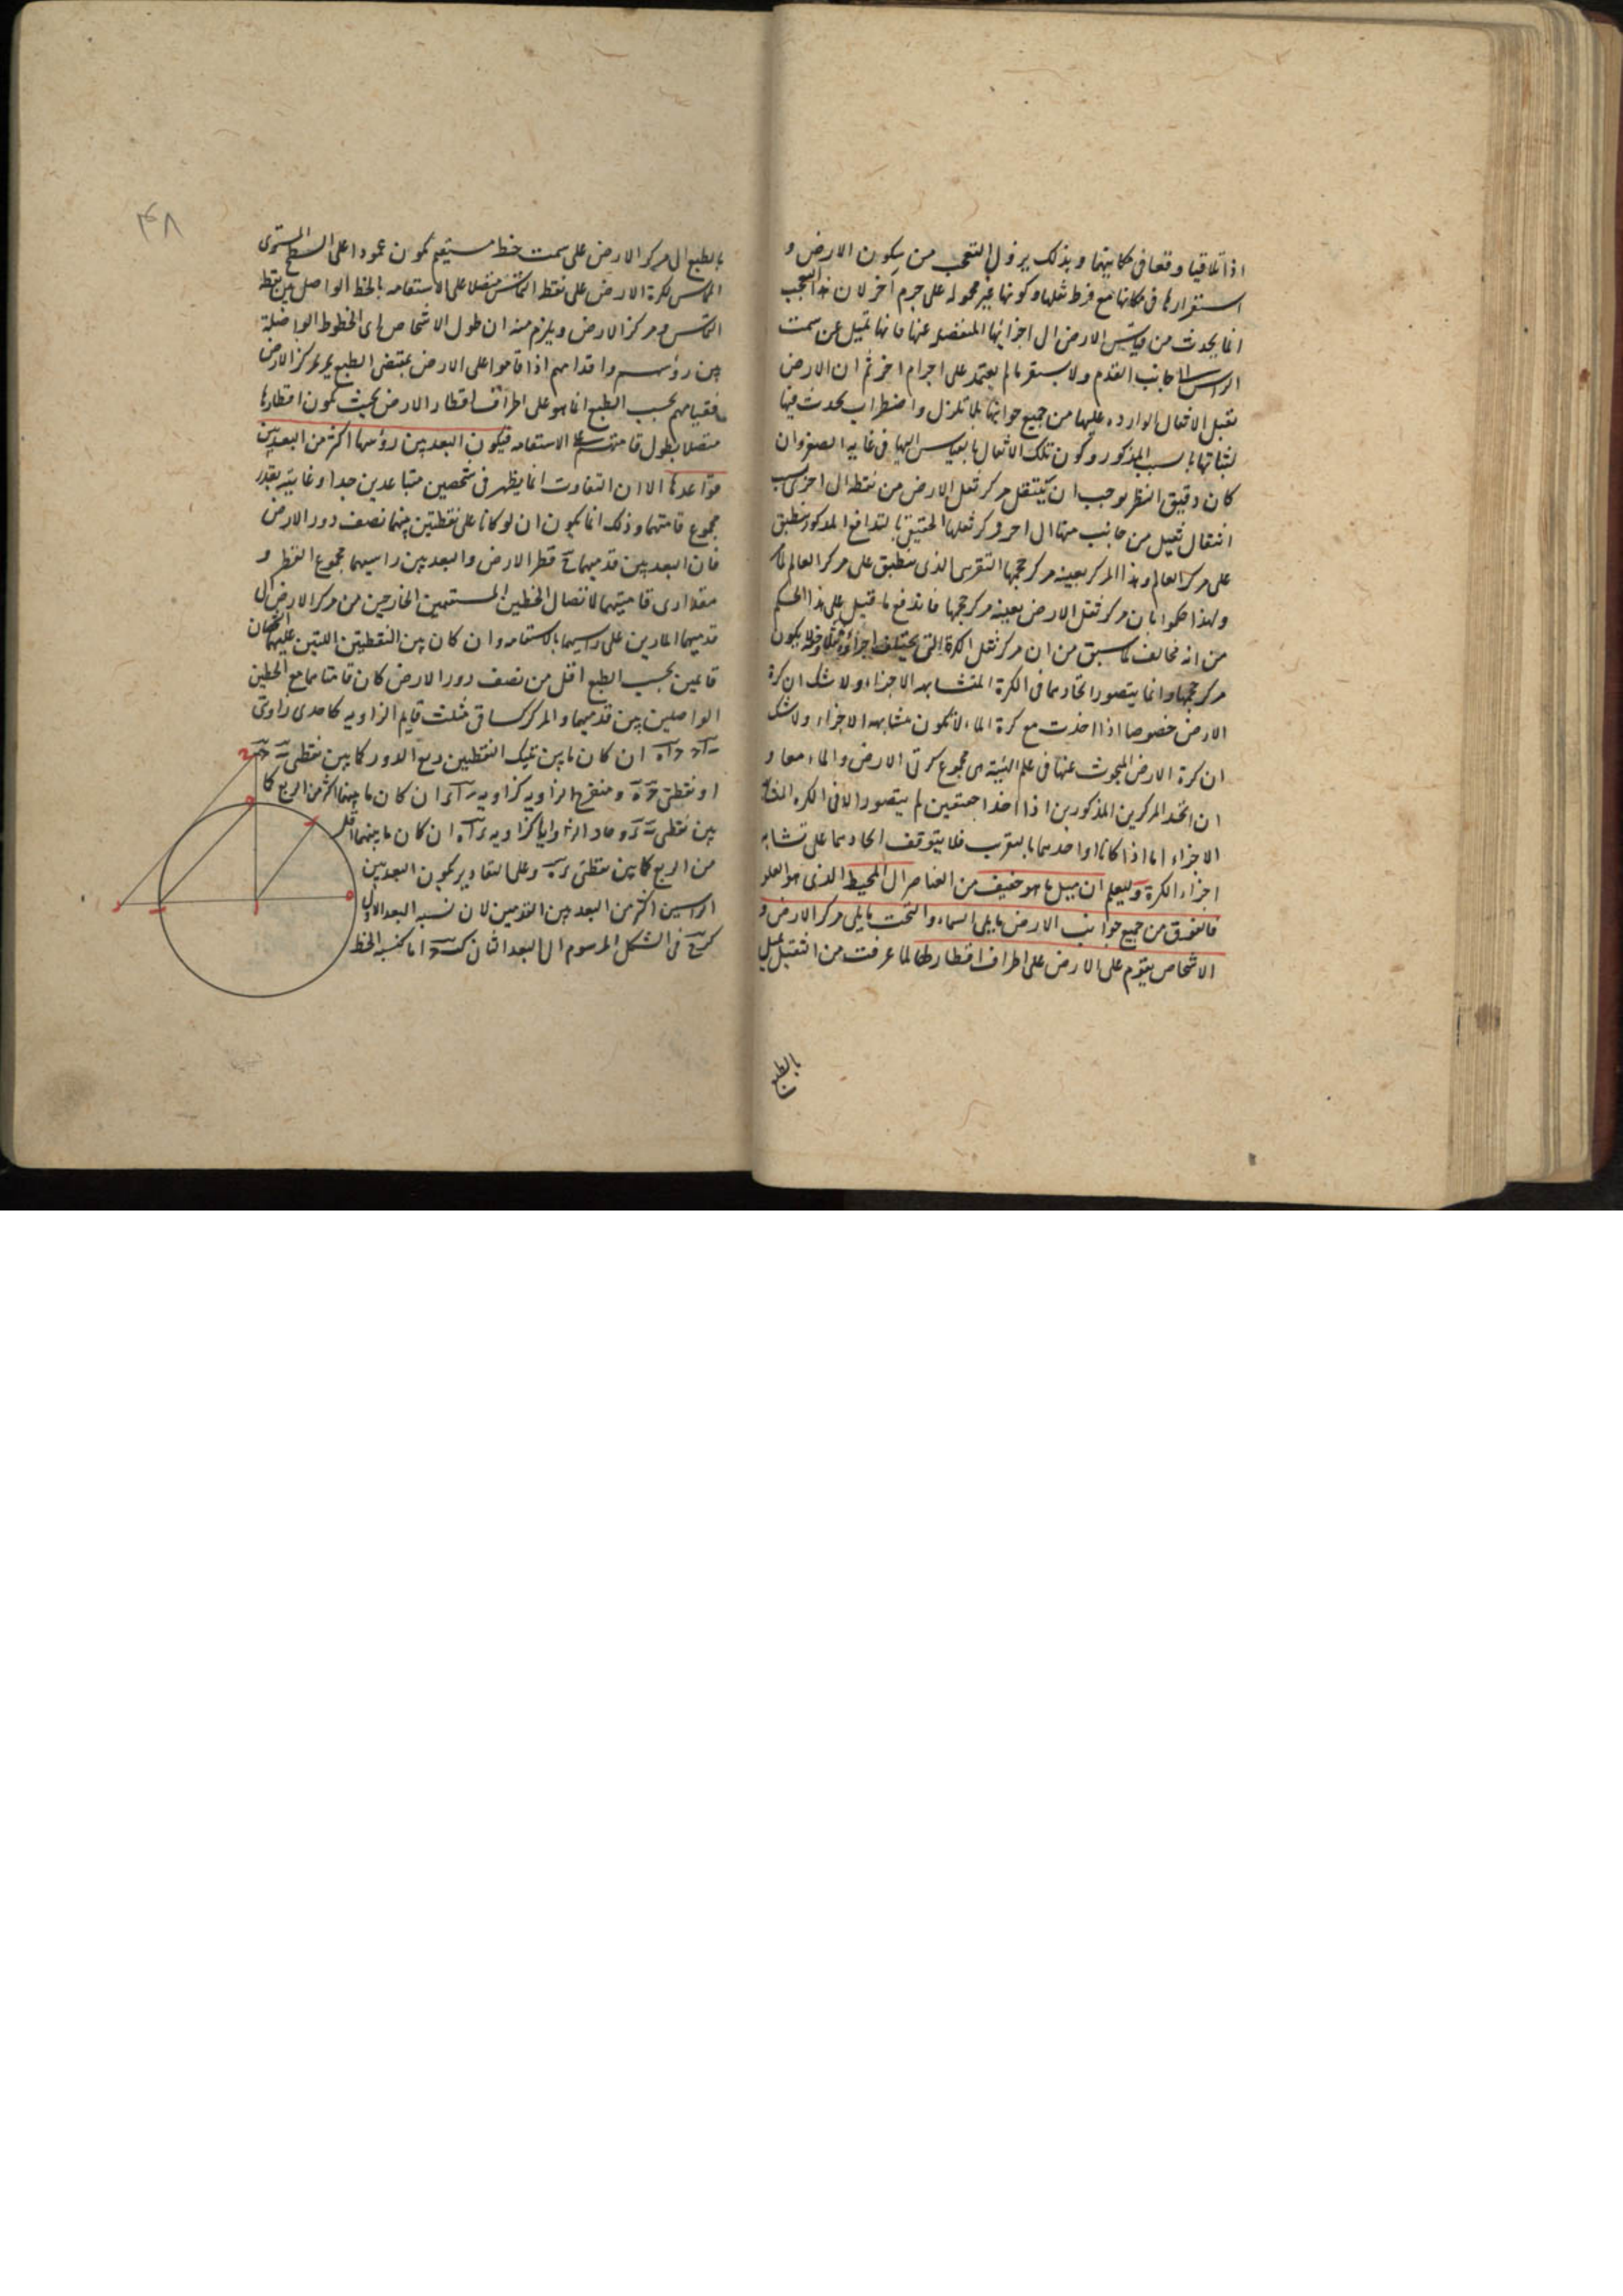 اذا تلاقيا وقفا في مكانيهما وبذلك يزول التعجب من سكون الارض و
استقرارها في مكانها مع فرط ثقلها وكونها غير محموله على جرم آخر لان هذا التعجب
انما يحدث من قياس الارض الى اجزائها المنفصله عنها فانها تميل عن سمت
الراس الى جانب القدم ولا يستقر ما لم يعتمد على اجرام اخر ثم ان الارض
تقبل الاثقال الوارده عليها من جميع جوانبها بلا تزلزل واضطراب يحدث فيها
لثباتها بالسبب المذكور وكون تلك الاثقال بالقياس اليها في غايه الصغر وان
كان دقيق النظر يوجب ان ينتقل مركز ثقل الارض من نقطه الى اخرى بسبب
انتقال ثقيل من جانب منها الى اخر ومركز ثقلها الحقيقي بالتدافع المذكور منطبق
على مركز العالم وهذا المركز بعينه مركز حجمها التقريبي الذي ينطبق على مركز العالم
ولهذا حكموا بان مركز ثقل الارض بعينه مركز حجمها فاندفع ما قيل على هذا الحكم
من انه مخالف لما سبق من ان مركز ثقل الكرة التي يختلف اجزاؤه ثقلا وخفة لا يكون
مركز حجمها وانما يتصور اتحادهما في الكرة المتشابهه الاجزاء ولا شك ان كرة
الارض خصوصا اذا اخذت مع كرة الماء لا تكون متشابهه الاجزاء ولا شك
ان كرة الارض المبحوث عنها في علم الهيئة هي مجموع كرتي الارض والماء معا و
ان اتحد المركزين المذكورين اذا اخذا حقيقيين لم يتصور الا في الكره المتشابهه
الاجزاء اما اذا كانا او احدهما بالتقريب فلا يتوقف اتحادهما على تشابه
اجزاء الكرة وليعلم ان ميل ما هو خفيف من العناصر الى المحيط الذي هو العلو
فالفوق من جميع جوانب الارض ما يلي السماء والتحت ما يلي مركز الارض و
الاشخاص يقوم على الارض على اطراف اقطارها لما عرفت من الثقيل يميل
بالطبع
۴۸
بالطبع الى مركز الارض على سمت خط مستقيم يكون عمودا على السطح المستوى
المماس لكرة الارض على نقطة التماس متصلا على الاستقامه بالخط الواصل بين نقطة
التماس ومركز الارض ويلزم منه ان طول الاشخاص اى الخطوط الواصلة
بين رؤسهم واقدامهم اذا قاموا على الارض بمقتضى الطبع يمر بمركز الارض
فقيامهم بحسب الطبع انما هو على اطراف اقطار الارض بحيث تكون اقطارها
متصلا بطول قامتهم على الاستقامه فيكون البعد بين رؤسها اكثر من البعد بين
قواعدها الا ان التفاوت انما يظهر في شخصين متباعدين جدا وغايته بقدر
مجموع قامتهما وذلك انما يكون ان لو كانا على نقطتين بينهما نصف دور الارض
فان البعد بين قدميهما ح قطر الارض والبعد بين راسيهما مجموع القطر و
مقدارى قامتيهما لاتصال الخطين المستقيمين الخارجين من مركز الارض الى
قدميهما المارين على راسيهما بالاستقامه وان كان بين النقطتين اللتين عليهما
قائمين بحسب الطبع اقل من نصف دور الارض كان قامتاهما مع الخطين
الواصلين بين قدميهما والمركز كساقي مثلث قايم الزاويه كاحدى زاويتى
ان كان ما بين تينك النقطتين ربع الدور كما بين نقطتى
او نقطتى ومنفرج الزاويه كزاويه ان كان ما بينهما اكثر من الربع كما
بين نقطتى وحاد الزوايا كزاويه ان كان ما بينهما اقل
من الربع كما بين نقطتى وعلى التقادير يكون البعد بين
الراسين اكثر من البعد بين القدمين لان نسبه البعد الاول
في الشكل المرسوم الى البعد الثاني كنسبه الخط